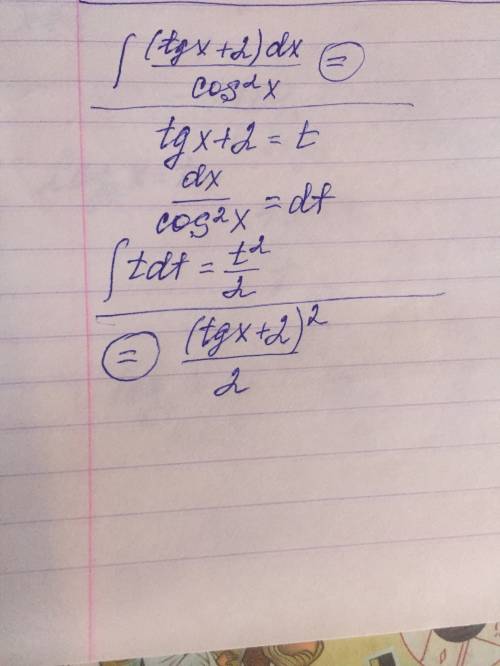 ∫ (tgx+2)dx / cos²x =
tgx+2 = t
dx / cos²x = dt
∫ tdt = t² / 2
= (tgx+2)² / 2